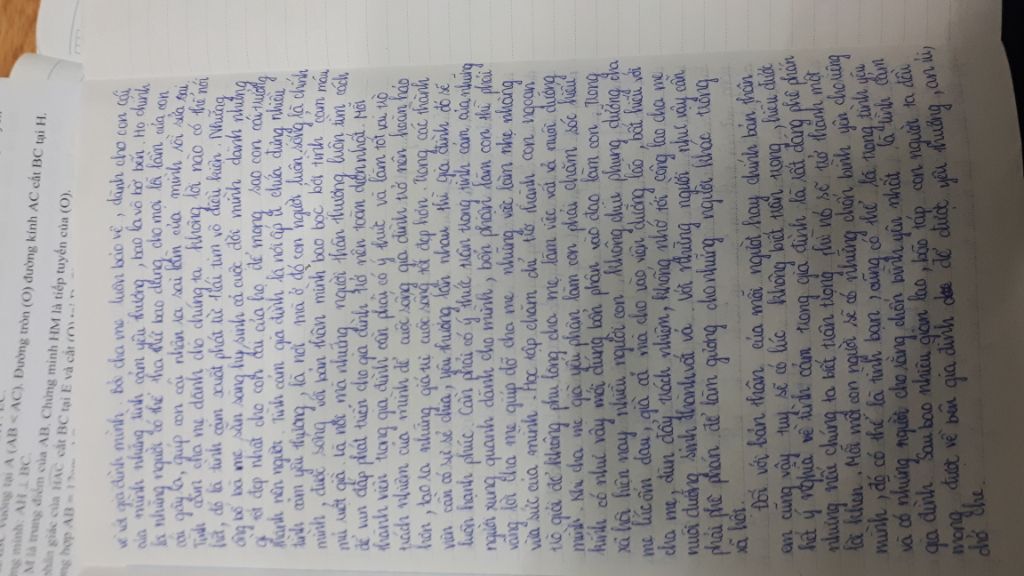 vuông tại A (AB < AC). Đường tròn (O) đường kính AC cắt BC tại H.
minh: AH ⊥ BC.
M là trung điểm của AB. Chứng minh HM là tiếp tuyến của (O).
phân giác của HAC cắt BC tại E và cắt (O)
hợp AB =
về với gia đình mình. Bởi cha mẹ luôn bảo vệ, dành cho con cái
của mình những tình cảm yêu thương, bao la vô bờ bến. Họ chính
là những người có thể tha thứ bao dung cho mọi lỗi lầm của con
cái gây ra, giúp con cái nhận ra sai lầm của mình rồi sửa sai.
Tình cảm cha mẹ dành cho chúng ta không lời nào có thể nói
hết, đó là tình cảm xuất phát từ trái tim vô điều kiện. Những
ông bố bà mẹ sẵn sàng hy sinh cả cuộc đời mình dành những
gì tốt đẹp nhất cho con cái của họ, để mong sao con cái trưởng
thành nên người. Tình cảm gia đình là nơi ấp ủ chứa đựng nhiều
tình cảm yêu thương, là nơi mà ở đó con người luôn sống là chính
mình, được sống với bản thân mình bao bọc bởi tình cảm máu
mủ ruột già là nơi mà những người thân thương luôn tìm cách
để vun đắp phát triển cho gia đình trở nên toàn diện nhất. Mỗi
thành viên trong gia đình cần phải có ý thức và làm tốt vai trò
trách nhiệm của mình để cuộc sống gia đình trở nên hoàn hảo
hơn, tạo ra những giá trị cuộc sống tốt đẹp hơn. Trong các thành
viên cần có sẻ chia, yêu thương lẫn nhau thì gia đình đó sẽ
luôn hạnh phúc. Cần phải có ý thức trân trọng tình cảm của những
người xung quanh dành cho mình, bổn phận làm con thì phải
vâng lời cha mẹ giúp đỡ cha mẹ những việc làm nhẹ nhàng
vừa sức của mình. Học tập chăm chỉ trở thành con ngoan
trò giỏi để không phụ lòng cha mẹ làm việc vất vả nuôi dưỡng
mình. Khi cha mẹ già yếu phận làm con phải chăm sóc hiếu
kính có như vậy mới đúng bổn phận và đạo làm con. Trong
xã hội hiện nay nhiều người con không chịu phụng dưỡng cha
mẹ lúc ốm đau, già cả mà cho vào viện dưỡng lão, bất hiếu với
cha mẹ, đùn đẩy trách nhiệm, không nhớ tới công lao cha mẹ
nuôi dưỡng, sinh thành vất vả. Với những người như vậy cần
phải phê phán để làm gương cho những người khác trong
xã hội.
Đối với bản thân của mỗi người hay chính bản thân
em cũng vậy tuy sẽ có lúc không biết trân trọng, hiểu được
hết ý nghĩa về tình cảm trong gia đình là rất đáng phê phán
nhưng nếu chúng ta biết trân trọng thì nó sẽ trở thành một
lời khen. Mỗi một con người sẽ có những chốn bình yên cho riêng
mình, đó có thể là tình bạn, cũng có thể là trong tình yêu
và có những người cho rằng chốn bình yên nhất là tình cảm
gia đình. Sau bao nhiêu gian lao, bão táp con người ta đều
mong được về bên gia đình để được yêu thương, an ủi,
chở che.